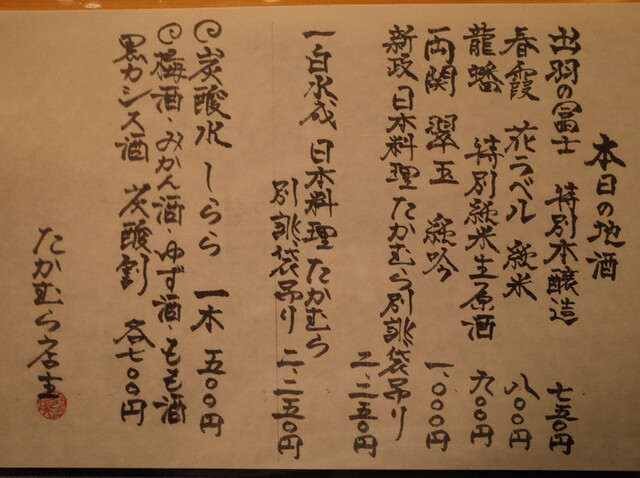 本日の地酒
出羽の冨士 特別本醸造 七五〇円
春霞 花ラベル 純米 八〇〇円
龍蟠 特別純米生原酒 六〇〇円
両関 翠玉 純吟 一、〇〇〇円
新政 日本料理たかむら別誂袋吊り
二、二五〇円
一白水成 日本料理たかむら
別誂袋吊り 二、二五〇円
炭酸水 しらら 一本 五〇〇円
梅酒・みかん酒・ゆず酒・もも酒
黒カシス酒 炭酸割 各七〇〇円
たかむら店主